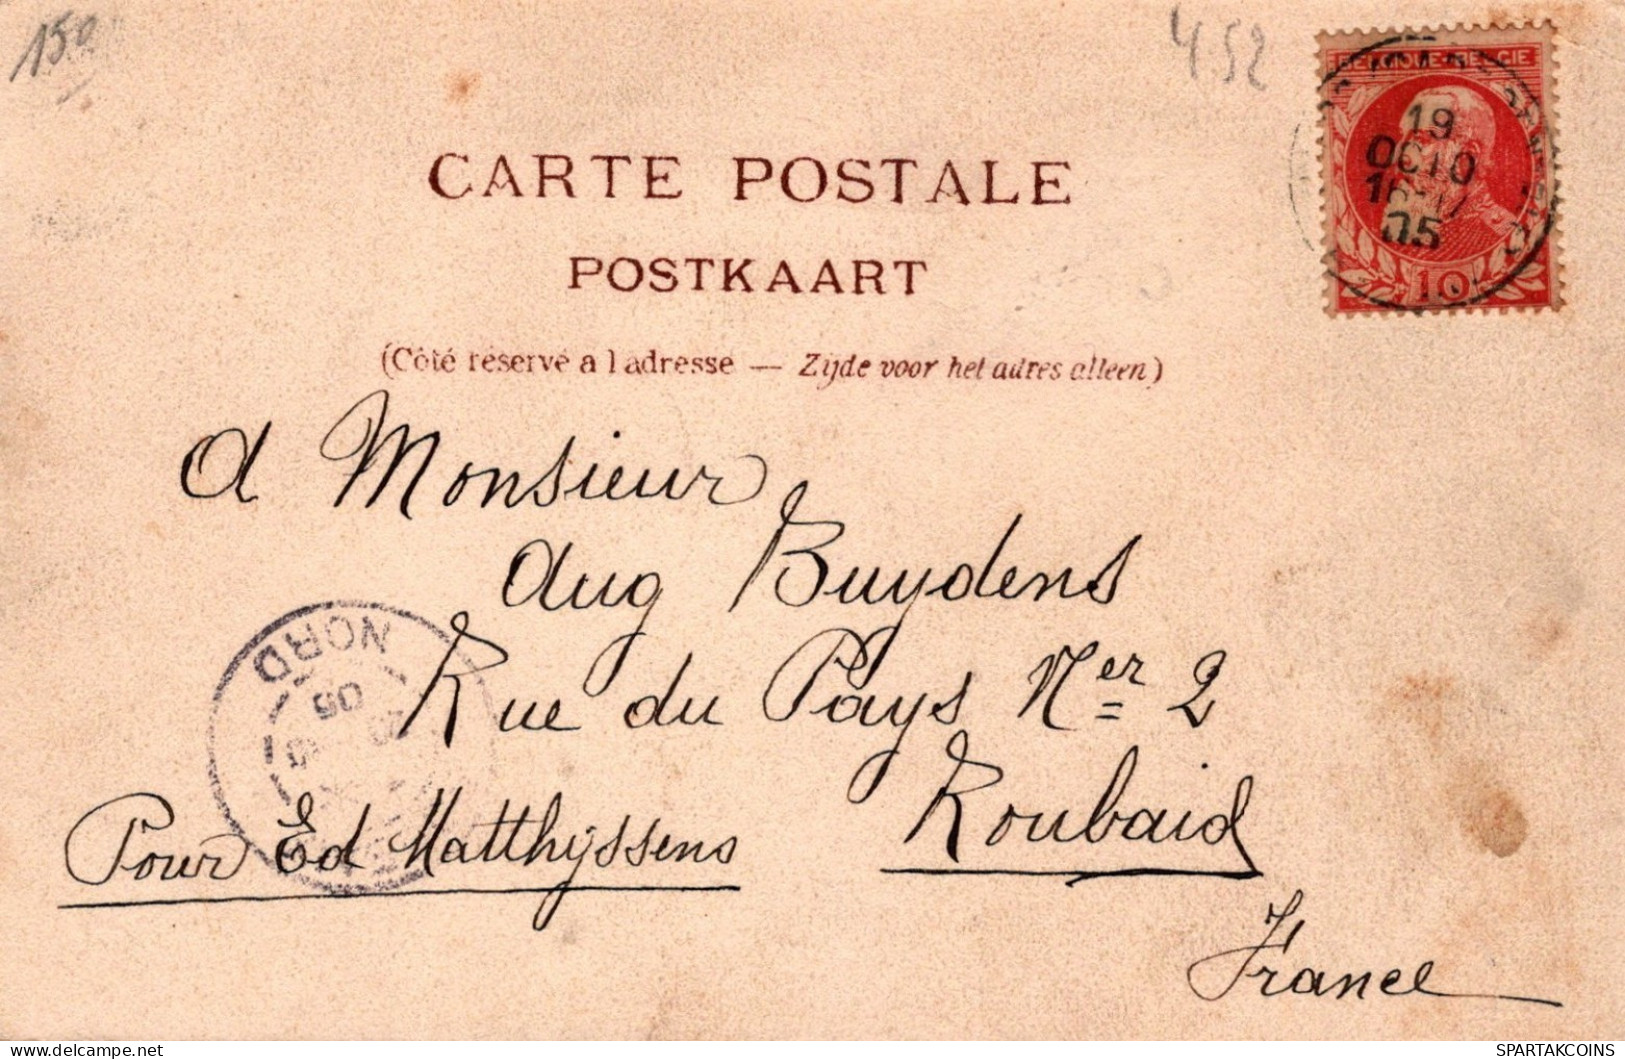 150
452
BELGIQUE BELGIE
19
OCTO
16-17
05
10
CARTE POSTALE
POSTKAART
(Côté réservé a l'adresse — Zijde voor het adres alleen)
A Monsieur
Aug Buydens
Rue du Pays Ner 2
Roubaid
Pour Ed Matthyssens
France
NORD
05
delcampe.net
SPARTAKCOINS